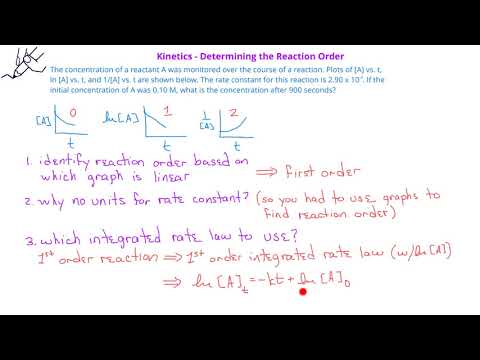 Kinetics - Determining the Reaction Order
The concentration of a reactant A was monitored over the course of a reaction. Plots of [A] vs. t,
ln [A] vs. t, and 1/[A] vs. t are shown below. The rate constant for this reaction is 2.90 x 10. If the
initial concentration of A was 0.10 M, what is the concentration after 900 seconds?
[A] 0 t
ln[A] 1 t
1/[A] 2 t
1. identify reaction order based on
which graph is linear ⟹ first order
2. why no units for rate constant? (so you had to use graphs to
find reaction order)
3. which integrated rate law to use?
1st order reaction ⟹ 1st order integrated rate law (w/ ln[A])
⟹ ln [A]t = -kt + ln [A]0